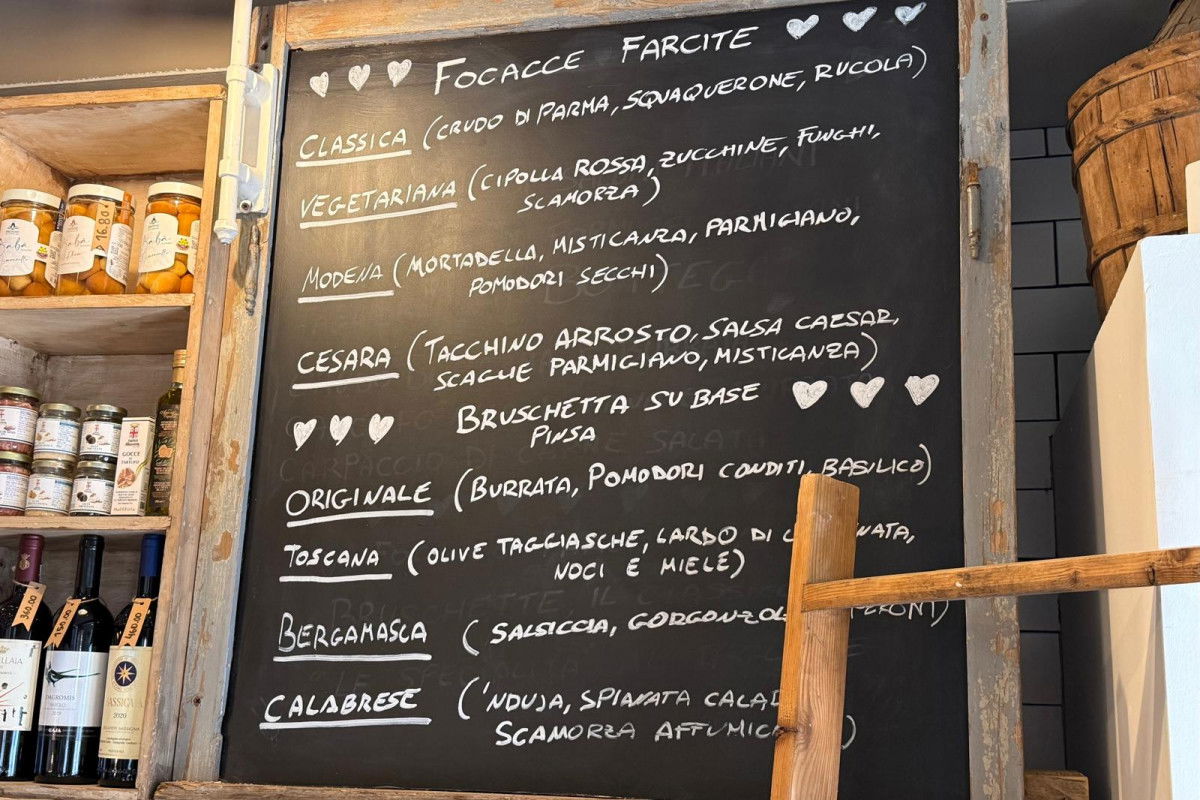 FOCACCE FARCITE
CLASSICA (CRUDO DI PARMA, SQUAQUERONE, RUCOLA)
VEGETARIANA (CIPOLLA ROSSA, ZUCCHINE, FUNGHI,
SCAMORZA)
MODENA (MORTADELLA, MISTICANZA, PARMIGIANO,
POMODORI SECCHI)
CESARA (TACCHINO ARROSTO, SALSA CAESAR,
SCAGLIE PARMIGIANO, MISTICANZA)
BRUSCHETTA SU BASE
PINSA
ORIGINALE (BURRATA, POMODORI CONDITI, BASILICO)
TOSCANA (OLIVE TAGGIASCHE, LARDO DI
NOCI E MIELE)
BERGAMASCA (SALSICCIA,
CALABRESE ('NDUJA, SPIANATA
SCAMORZA
16.80
GOCCE
360.00
150.00
460.00
DAGROMIS
GAJA
2020